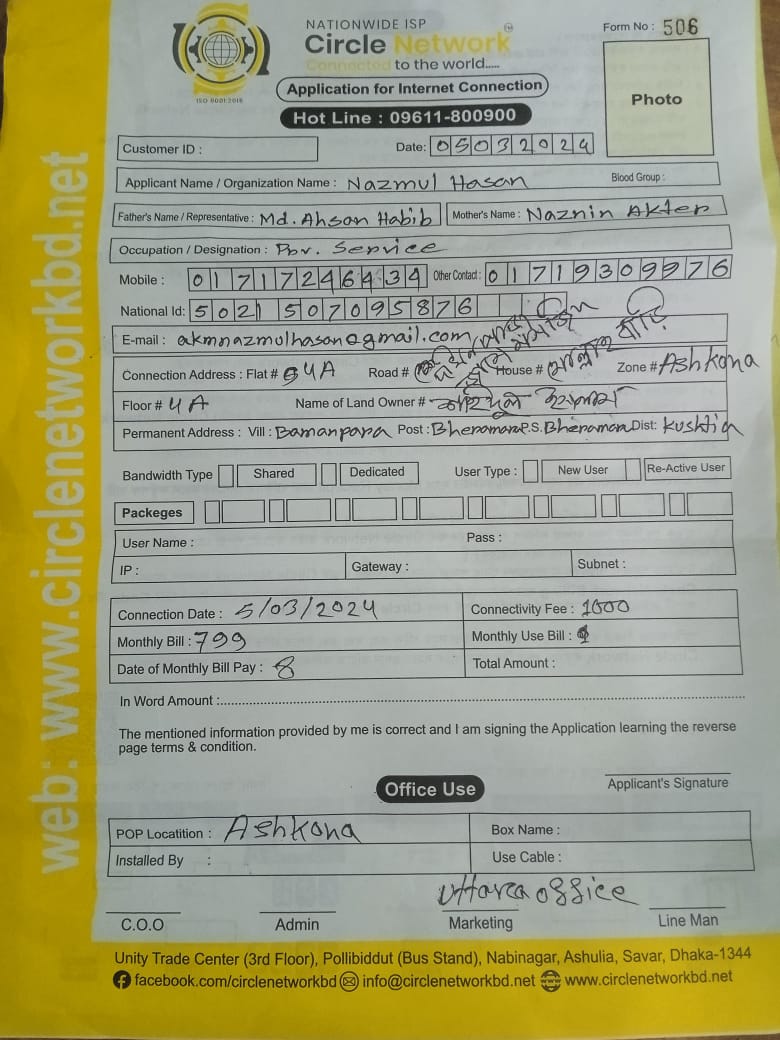 NATIONWIDE ISP
Circle Network
Connected to the world.....
ISO 9001:2015
Form No : 506
Application for Internet Connection
Hot Line : 09611-800900
Photo
Customer ID :
Date: 05032024
Applicant Name / Organization Name : Nazmul Hasan Blood Group :
Father's Name / Representative : Md. Ahsan Habib Mother's Name : Naznin Akter
Occupation / Designation : Prv. Service
Mobile : 01717246434 Other Contact : 01719309976
National Id: 5021507095876
E-mail : akmnazmulhasan@gmail.com
Connection Address : Flat # 4A Road # House # Zone # Ashkona
Floor # 4A Name of Land Owner #
Permanent Address : Vill : Bamanpara Post : Bheramara P.S. Bheramara Dist: Kushtia
Bandwidth Type Shared Dedicated User Type : New User Re-Active User
Packeges
User Name : Pass :
IP : Gateway : Subnet :
Connection Date : 5/03/2024 Connectivity Fee : 1000
Monthly Bill : 799 Monthly Use Bill :
Date of Monthly Bill Pay : 8 Total Amount :
In Word Amount :
The mentioned information provided by me is correct and I am signing the Application learning the reverse
page terms & condition.
Applicant's Signature
Office Use
POP Locatition : Ashkona Box Name :
Installed By : Use Cable :
Uttara office
C.O.O Admin Marketing Line Man
Unity Trade Center (3rd Floor), Pollibiddut (Bus Stand), Nabinagar, Ashulia, Savar, Dhaka-1344
facebook.com/circlenetworkbd info@circlenetworkbd.net www.circlenetworkbd.net
web: www.circlenetworkbd.net